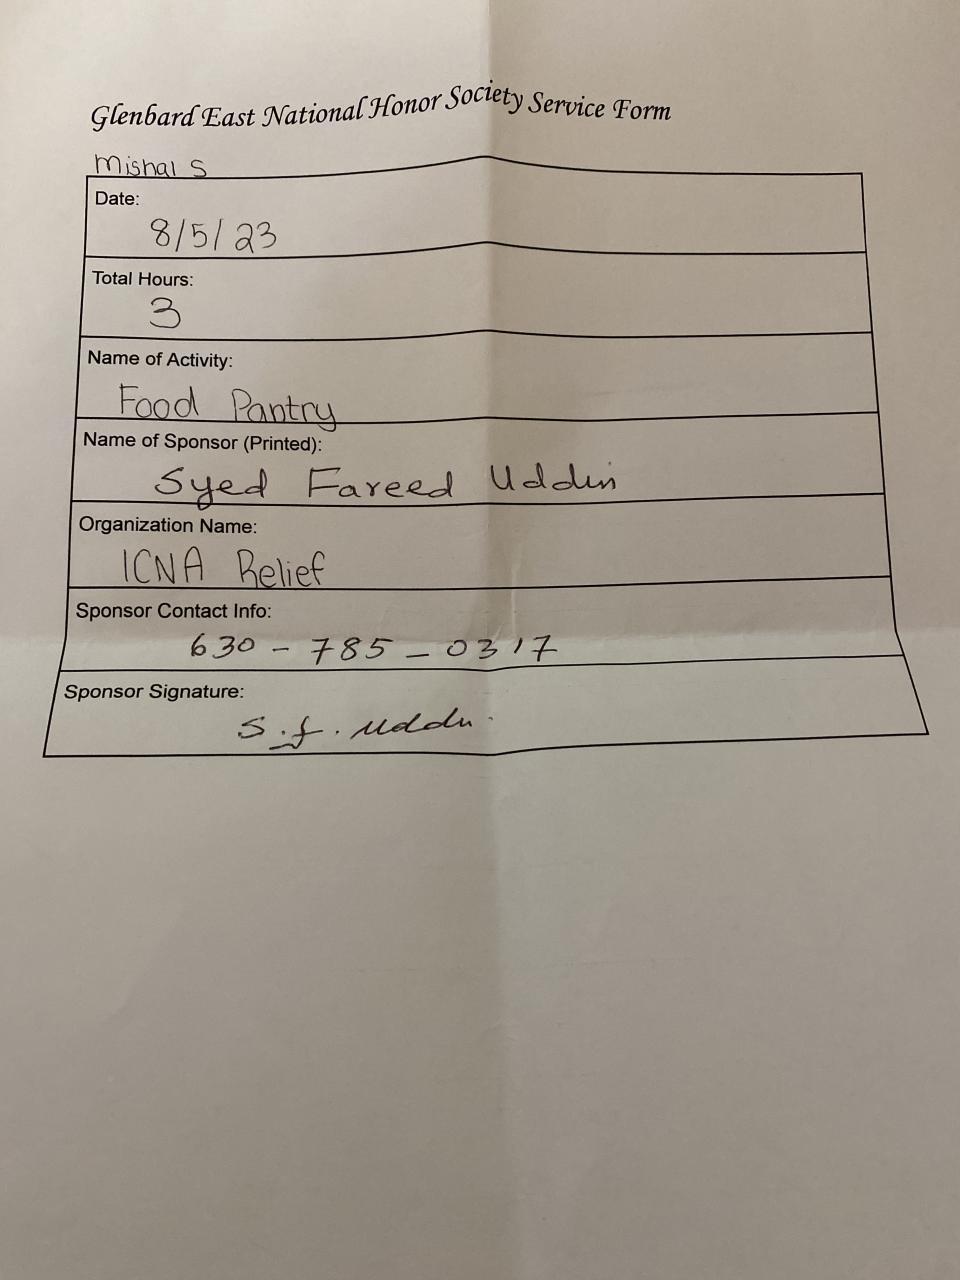 Glenbard East National Honor Society Service Form
Mishal S
Date:
8/5/23
Total Hours:
3
Name of Activity:
Food Pantry
Name of Sponsor (Printed):
Syed Fareed Uddin
Organization Name:
ICNA Relief
Sponsor Contact Info:
630-785-0317
Sponsor Signature:
S.f. Uddin